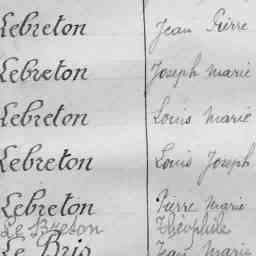 Lebreton Jean Pierre
Lebreton Joseph Marie
Lebreton Louis Marie
Lebreton Louis Joseph
Lebreton Pierre Marie
Le Breton Théophile
Le Bris Jean Marie